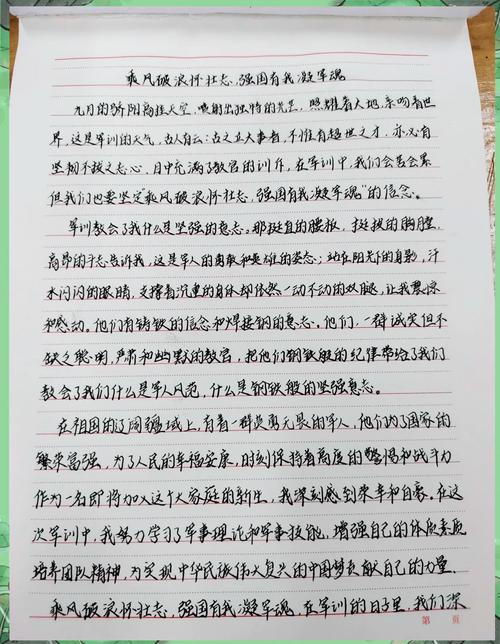 乘风破浪怀壮志,强国有我凝军魂
九月的骄阳高挂天空,喷射出独特的光芒,照耀着大地,亲吻着世
界,这是军训的天气,古人有云:古之立大事者,不惟有超世之才,亦必有
坚韧不拔之志心,日中充满了教官的训斥,在军训中,我们会苦会累
但我们也要坚定"乘风破浪怀壮志,强国有我凝军魂"的信念。
军训教会了我什么是坚强的意志。那挺直的腰板,挺拔的胸膛,
高昂的斗志告诉我,这是军人的勇敢和英雄的姿态;站在阳光下的身影,汗
水闪闪的眼睛,支撑着沉重的身体却依然一动不动的双腿,让我震惊
和感动。他们有铸铁的信念和焊接钢的意志。他们,一群诚笑但不
缺乏聪明,严肃和幽默的教官,把他们钢铁般的纪律带给了我们
教会了我们什么是军人风范,什么是钢铁般的坚强意志。
在祖国的辽阔疆域上,有着一群英勇无畏的军人,他们为了国家的
繁荣富强,为了人民的幸福安康,时刻保持着高度的警惕和战斗力
作为一名即将加入这个大家庭的新生,我深刻感到荣幸和自豪。在这
次军训中,我努力学习了军事理论和军事技能,增强自己的体质素质
培养团队精神,为实现中华民族伟大复兴的中国梦贡献自己的力量.
乘风破浪怀壮志,强国有我凝军魂,在军训的日子里,我们深
第 页